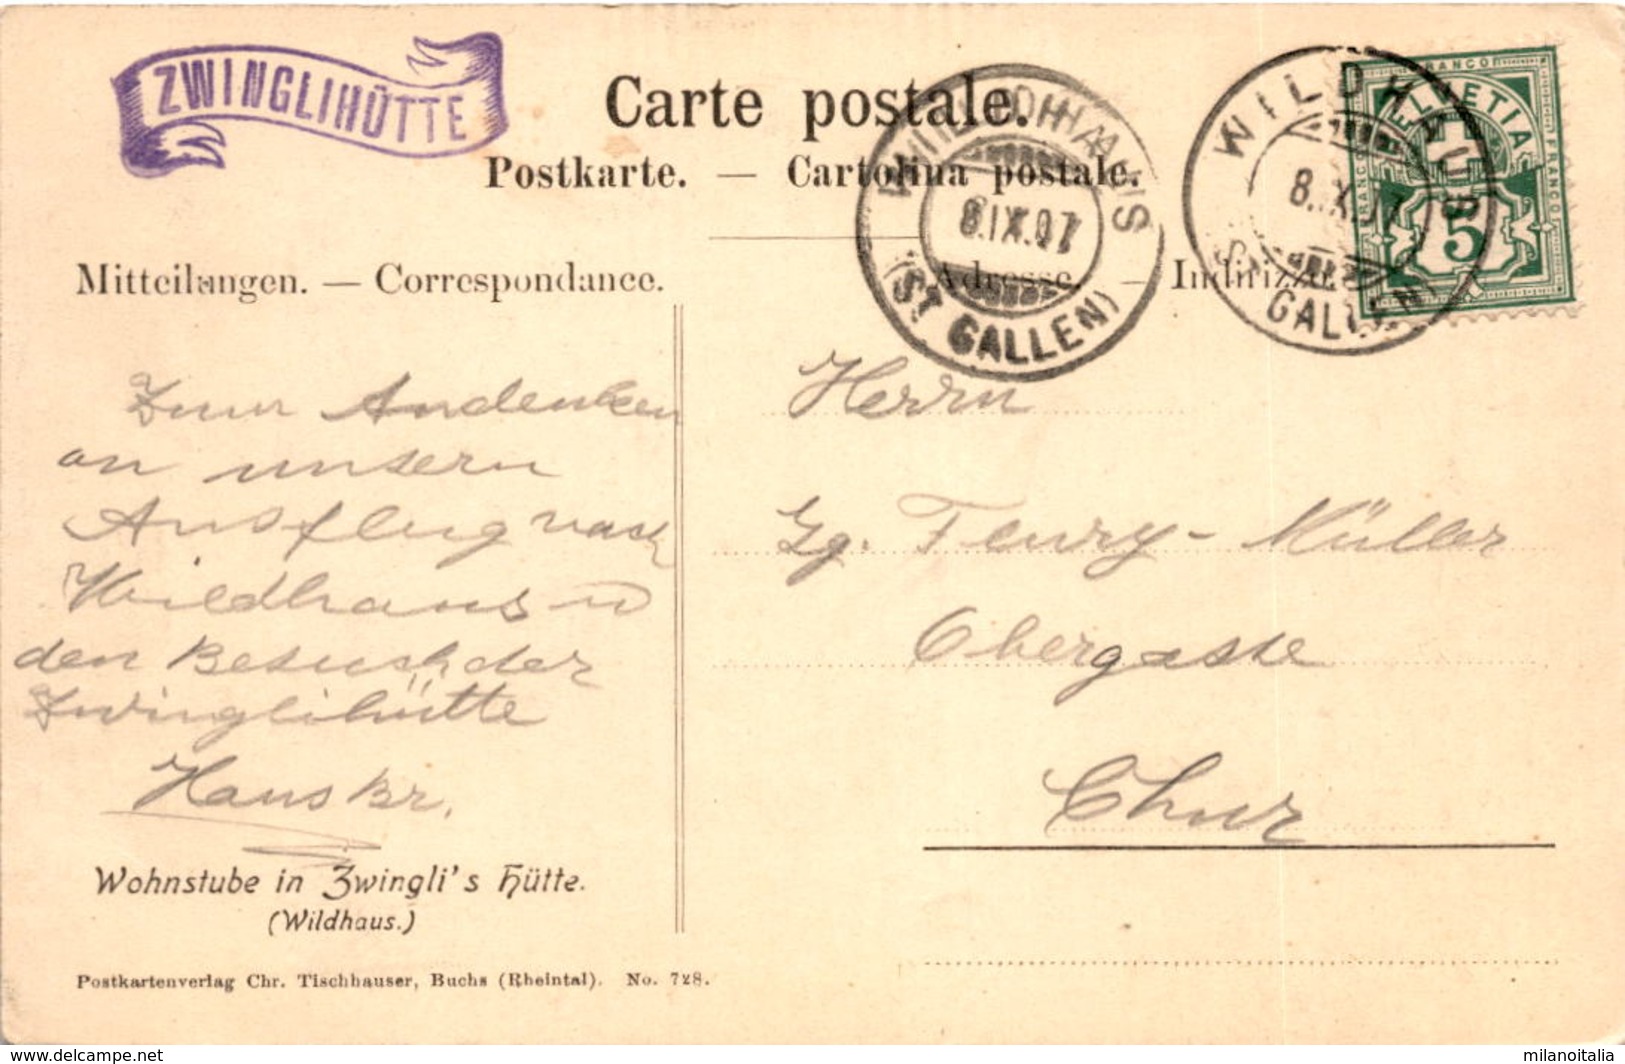 ZWINGLIHÜTTE
Carte postale.
Postkarte. — Cartolina postale.
WILDHAUS
8.IX.07
(ST. GALLEN)
WILDHAUS
8.IX.07
(ST. GALLEN)
FRANCO
HELVETIA
FRANCO
FRANCO
5
Mitteilungen. — Correspondance.
Adresse. — Indirizzo.
Zum Andenken
an unsern
Ausflug nach
Wildhaus u
den Besuch der
Zwinglihütte
Hans Br.
Herrn
Gg. Feury-Müller
Obergasse
Chur
Wohnstube in Zwingli's Hütte.
(Wildhaus.)
Postkartenverlag Chr. Tischhauser, Buchs (Rheintal). No. 728.
https://www.delcampe.net
milanoitalia